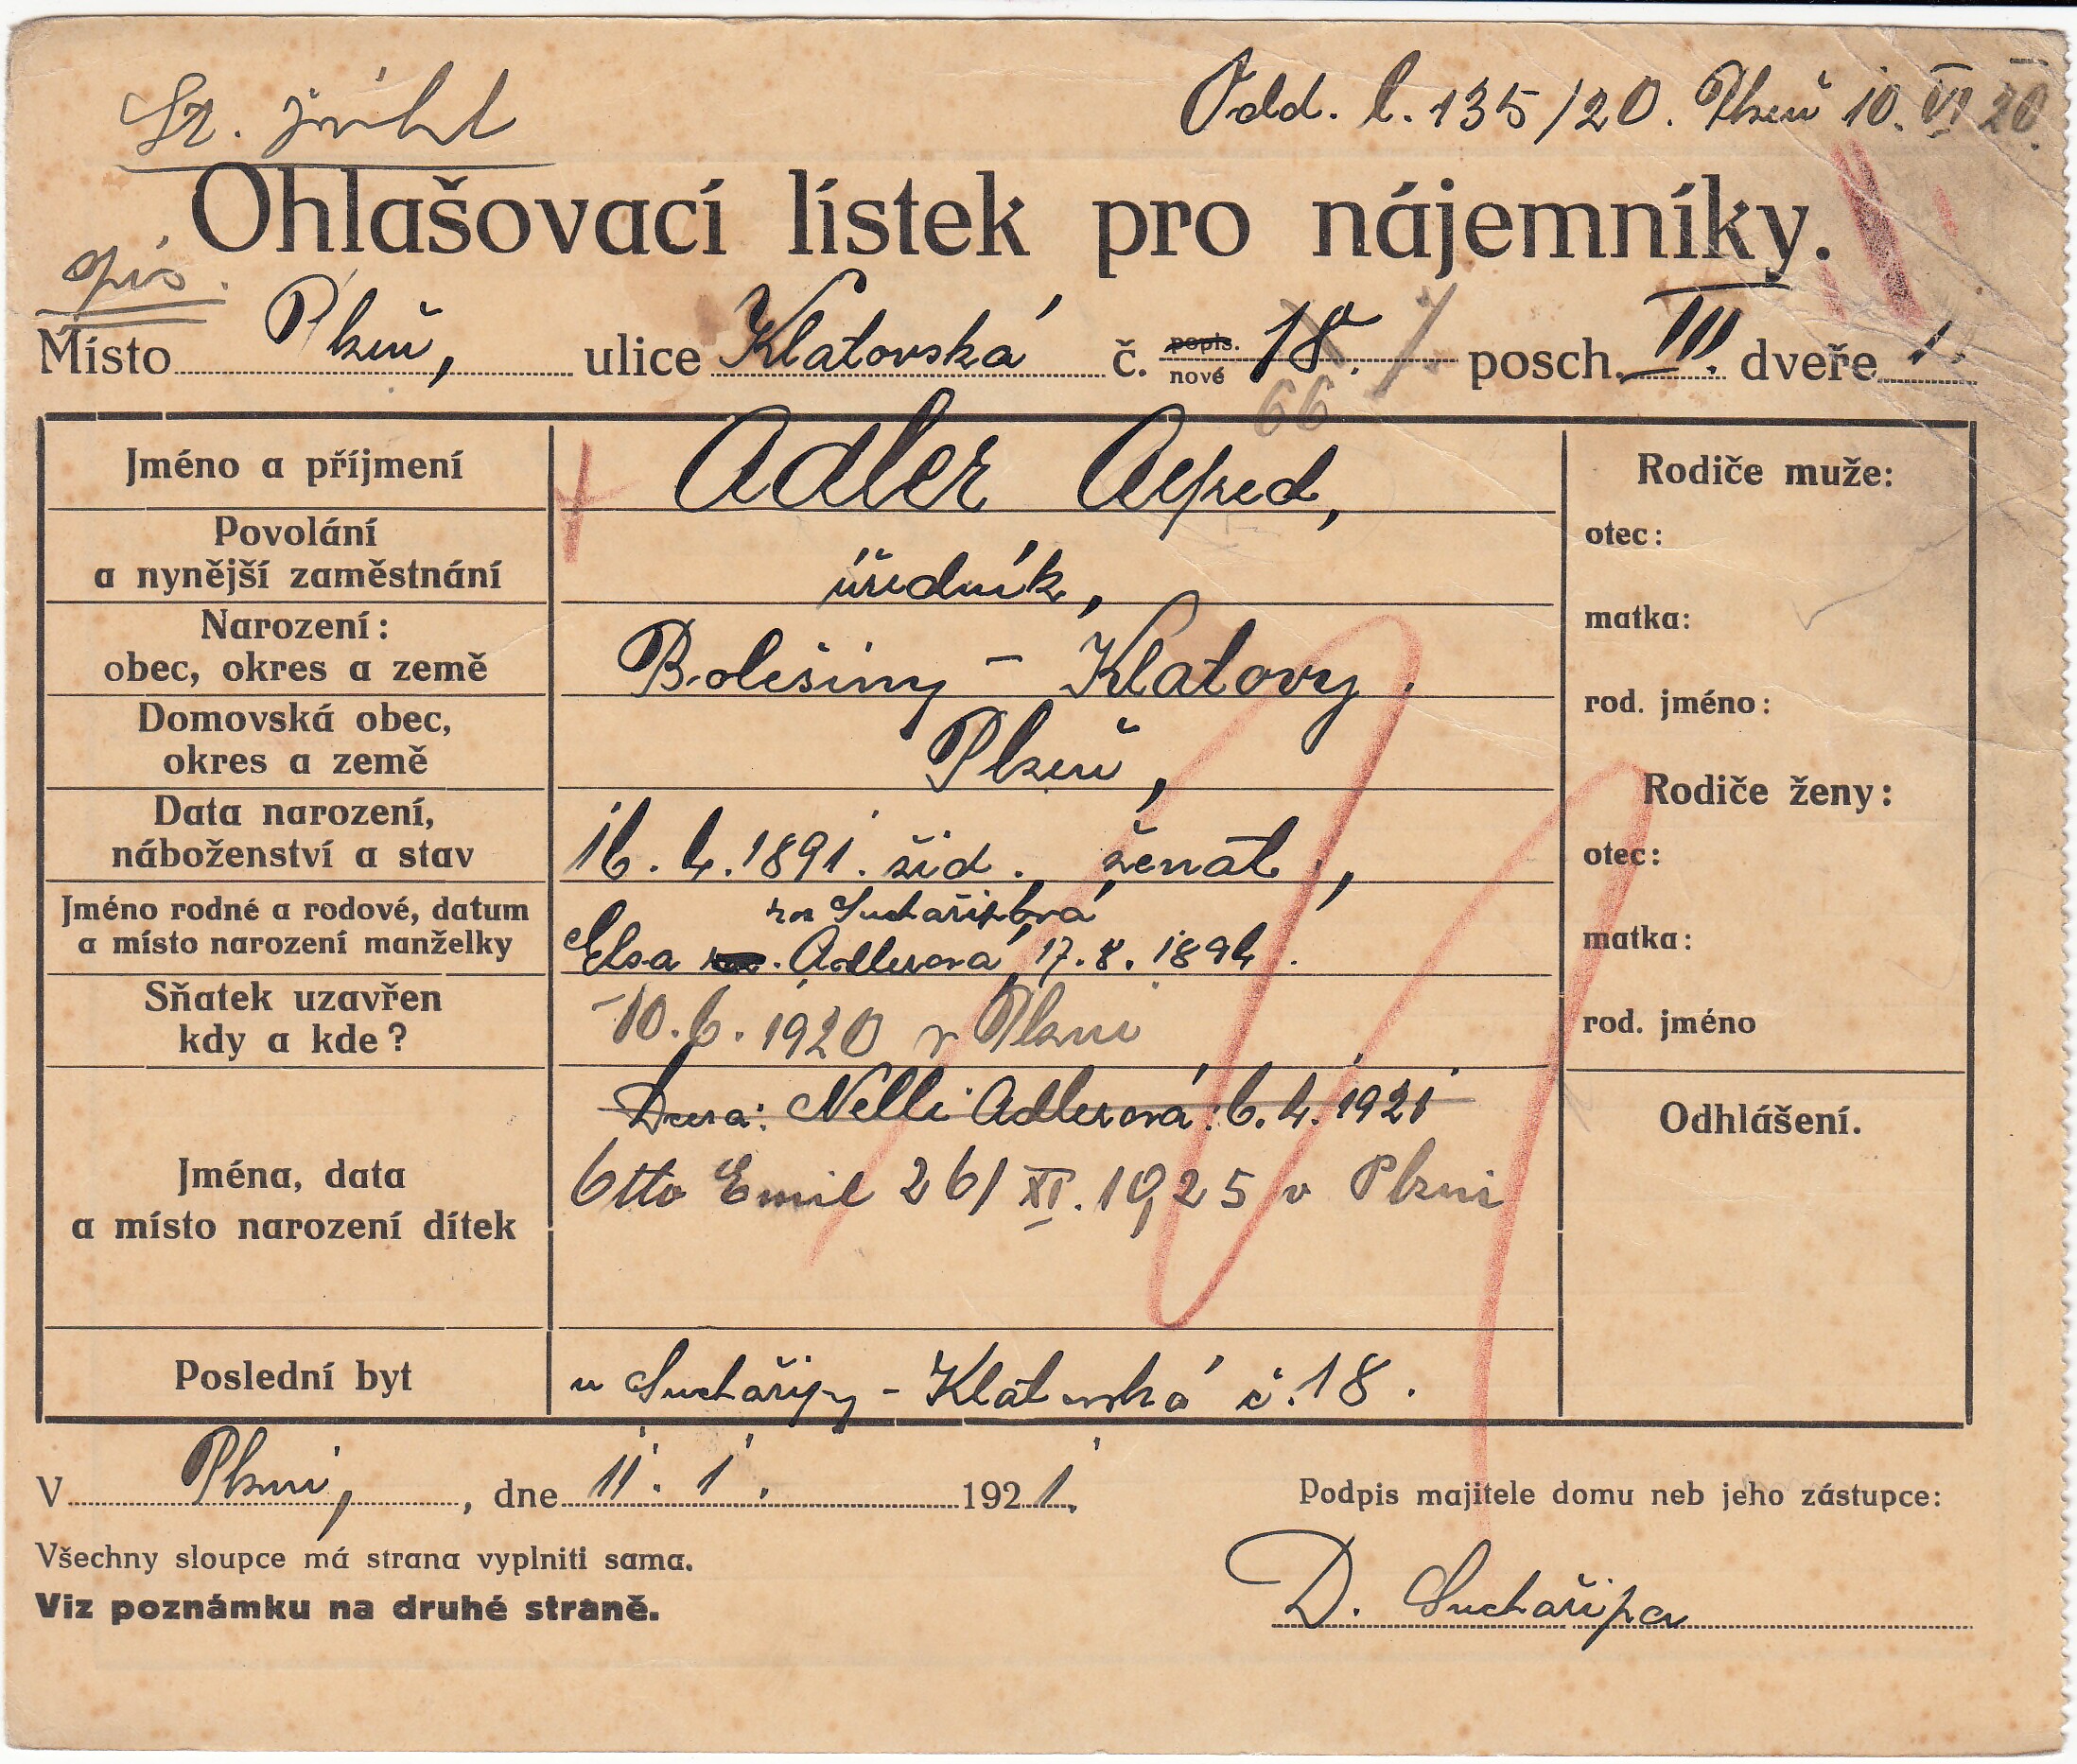 Odd. l. 135/20. Plzeň 10. VI 20.
Ohlašovací lístek pro nájemníky.
opis.
Místo Plzeň, ulice Klatovská č. popis. nové 18. 7. posch. III. dveře 1.
66
Jméno a příjmení Adler Alfred,
Rodiče muže:
Povolání
a nynější zaměstnání úředník,
otec:
Narození:
obec, okres a země Bolešiny - Klatovy.
matka:
Domovská obec,
okres a země Plzeň,
rod. jméno:
Data narození,
náboženství a stav 16. 4. 1891. žid., ženat.,
Rodiče ženy:
otec:
Jméno rodné a rodové, datum
a místo narození manželky
roz Suchařipová
Elsa Adlerová 17. 8. 1894.
matka:
Sňatek uzavřen
kdy a kde? 10. 6. 1920 v Plzni
rod. jméno
Jména, data
a místo narození dítek
Dcera: Nelli Adlerová: 6. 4. 1921
Otto Emil 26/XI. 1925 v Plzni
Odhlášení.
Poslední byt u Suchařipy - Klatovská č. 18.
V Plzni, , dne 11. 1. 1921.
Podpis majitele domu neb jeho zástupce:
Všechny sloupce má strana vyplniti sama.
Viz poznámku na druhé straně.
D. Suchařipa